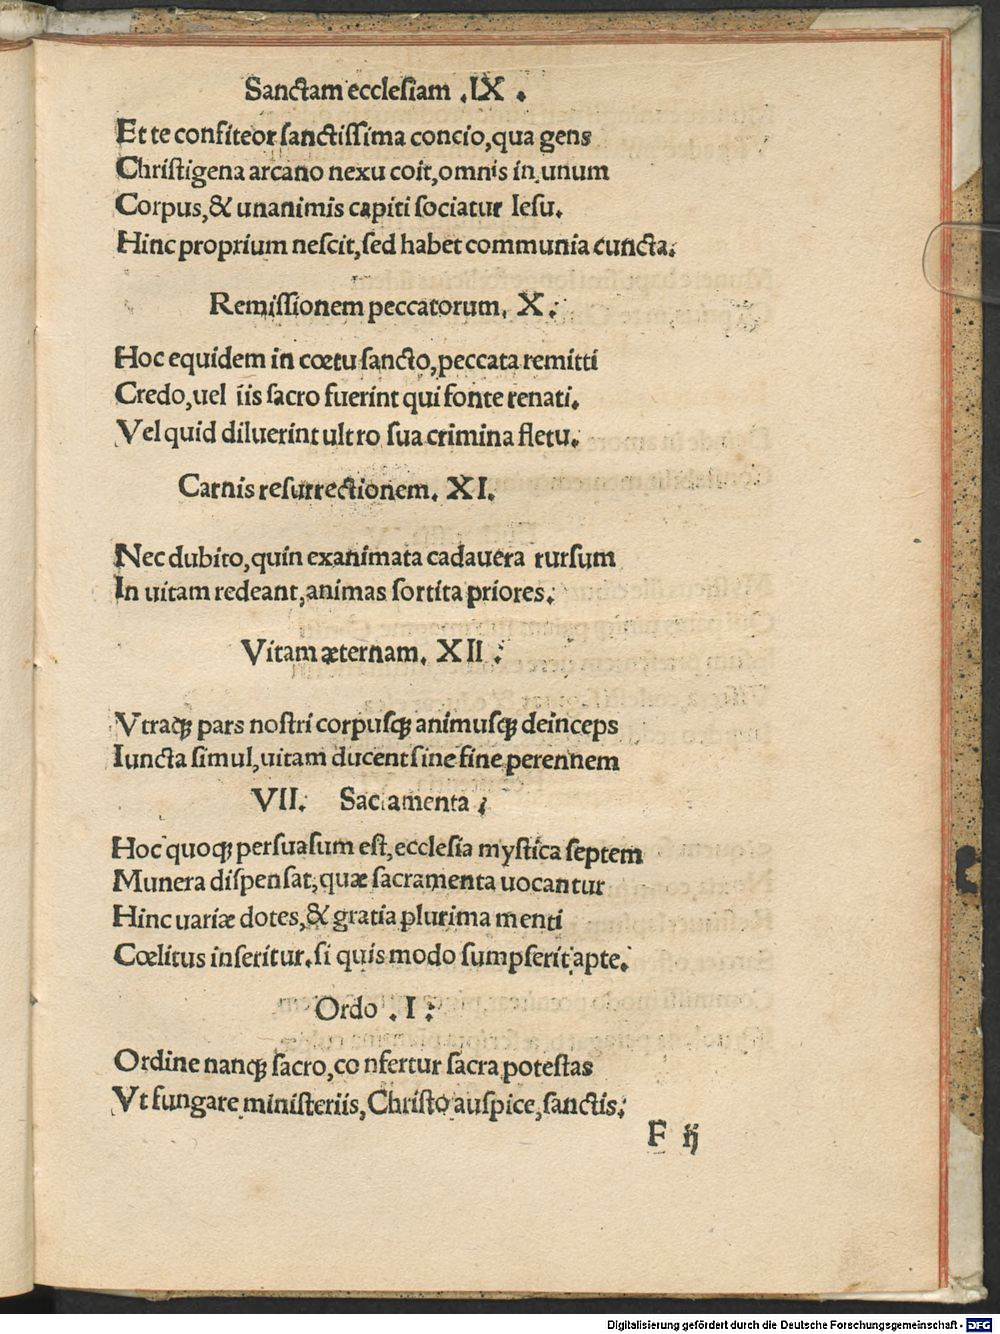 Sanctam ecclesiam .IX .
Et te confiteor sanctissima concio,qua gens
Christigena arcano nexu coit,omnis in unum
Corpus,& unanimis capiti sociatur Iesu.
Hinc proprium nescit,sed habet communia cuncta.
Remissionem peccatorum. X.
Hoc equidem in cœtu sancto,peccata remitti
Credo,uel iis sacro fuerint qui fonte renati.
Vel quid diluerint ultro sua crimina fletu.
Carnis resurrectionem. XI.
Nec dubito,quin exanimata cadauera rursum
In uitam redeant,animas sortita priores.
Vitam æternam. XII .
Vtraqꝫ pars nostri corpusqꝫ animusqꝫ deinceps
Iuncta simul,uitam ducent sine fine perennem
VII. Sacramenta .
Hoc quoqꝫ persuasum est,ecclesia mystica septem
Munera dispensat,quæ sacramenta uocantur
Hinc uariæ dotes,& gratia plurima menti
Cœlitus inseritur.si quis modo sumpserit apte.
Ordo .I .
Ordine nanqꝫ sacro,co nfertur sacra potestas
Vt fungare ministeriis,Christo auspice,sanctis.
F ij
Digitalisierung gefördert durch die Deutsche Forschungsgemeinschaft - DFG